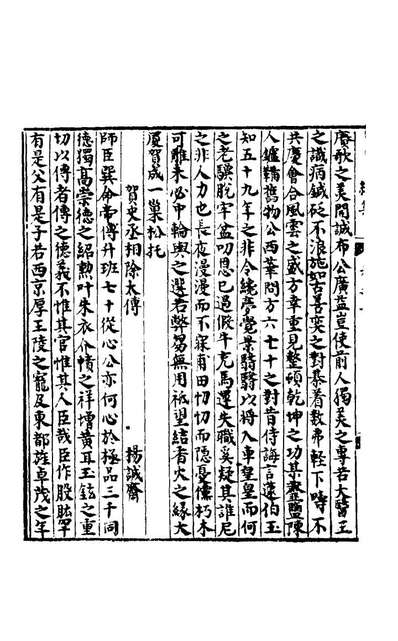 賡歌之美開誠布公廣益豈使前人獨美之專若大醫王
之識病鍼砭不浪施如古善奕之對棊着數弗輕下時不
共慶會合風雲之盛方幸重見整頓乾坤之功某虀鹽陳
人爐鞴舊物公西華問方六七十之對昔侍誨言蘧伯玉
知五十九年之非今纔夢覺景翳翳以將入車皇皇而何
之老驥脫牢盆叨恩已過假牛克馬運失職奚疑其誰尼
之非人力也長夜漫漫而不寐甫田切切而隱憂儻朽木
可雕未必中輪輿之選若弊芻無用祇望結香火之緣大
厦賀成一巢松托
賀史丞相除太傅
楊誠齋
師臣巽命帝傅升班七十從心公亦何心於極品三千同
德獨高崇德之紹勲叶朱衣介幘之祥增黄耳玉鉉之重
切以傅者傅之德義不惟其官惟其人臣哉臣作股肱罕
有是父有是子若西京厚王陵之寵及東都旌卓茂之年